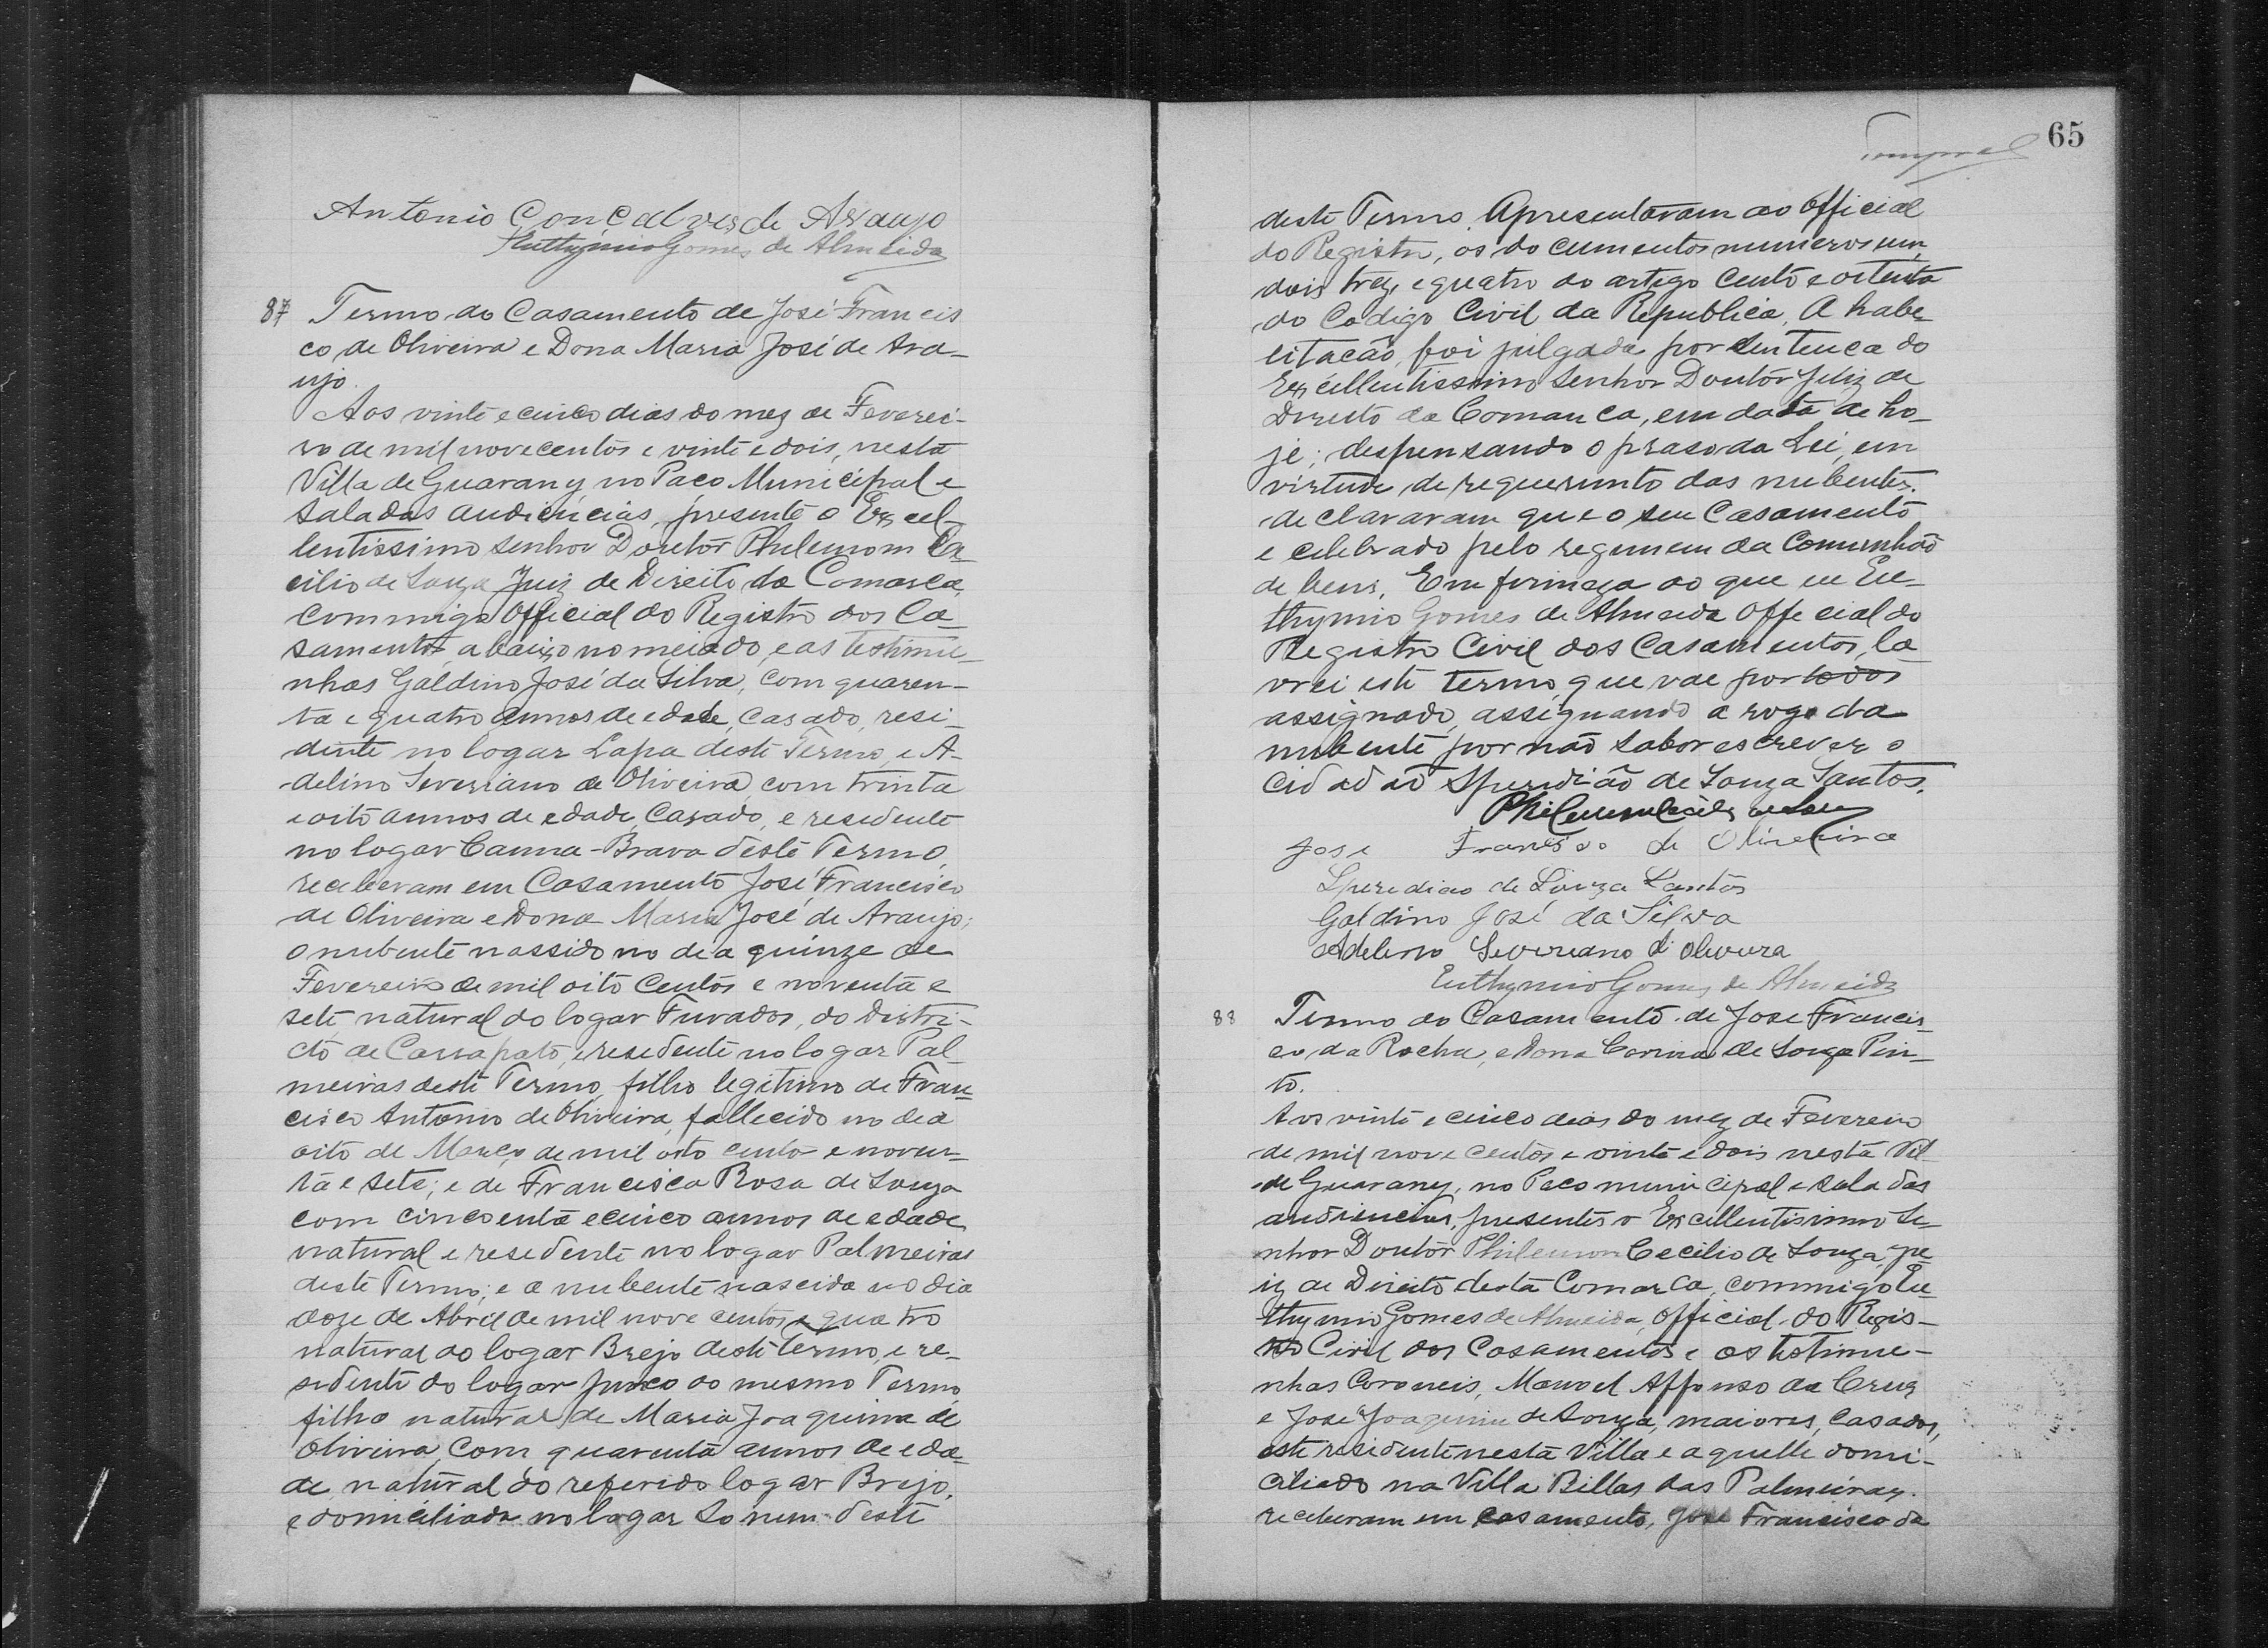 Antonio Conçalves de Araujo
Euthymio Gomes de Almeida
87 Termo do Casamento de José Francis
co de Oliveira e Dona Maria José de Ara-
ujo.
Aos vinte e cinco dias do mez de Feverei-
ro de mil novecentos e vinte e dois, nesta
Villa de Guarany, no Paço Municipal e
Sala das audiencias, presente o Excel-
lentissimo Senhor Doutor Philemom Ce-
cilio de Souza Juiz de Direito da Comarca,
commigo Official do Registro dos Ca-
samentos, abaixo nomeiado, e as testimu-
nhas Galdino José da Silva, com quaren-
ta e quatro annos de edade, casado, resi-
dente no logar Lapa deste Termo, e A-
delino Severiano de Oliveira, com trinta
e oito annos de edade, casado, e residente
no logar Canna-Brava deste Termo,
receberam em Casamento José Francisco
de Oliveira e Dona Maria José de Araujo;
o nubente nassido no dia quinze de
Fevereiro de mil oito centos e noventa e
sete natural do logar Furados, do Distri-
cto de Carrapato, e residente no logar Pal-
meiras deste Termo, filho legitimo de Fran-
cisco Antonio de Oliveira, fallecido no dia
oito de Março de mil oito cento e noven-
ta e sete; e de Francisca Rosa de Souza
com cincoenta e cinco annos de edade
natural e residente no logar Palmeiras
deste Termo; e a nubente nascida no dia
doze de Abril de mil nove centos e quatro
natural do logar Brejo deste Termo, e re-
sidente do logar Junco do mesmo Termo,
filha natural de Maria Joaquina de
Oliveira, com quarenta annos de eda-
de natural do referido logar Brejo,
e domiciliada no logar deste
65
deste Termo. Apresentaram ao Official
do Registro, os documentos numeros um,
dois, trez, e quatro do artigo cento e oitenta
do Codigo Civil da Republica. A habe-
litacão, foi julgada por Sentença do
Excellentissimo Senhor Doutor Juiz de
Direito da Comarca, em data de ho-
je; despensando o praso da Lei, em
virtude de requerimento dos nubentes.
declararam que o seu Casamento
e celebrado pelo regimem da Comunhão
de bens. Em firmeza ao que eu Eu-
thymio Gomes de Almeida Official do
Registro Civil dos Casamentos, la
vrei este termo, que vae por todos
assignado, assignando a rogo da
nubente por não saber escrever o
cidadão Speridião de Souza Santos.
Philemon Cecilio de Souza
Jose Francisco de Oliveira
Speredião de Souza Santos
Galdino José da Silva
Adelino Severiano d' Oliveira
Euthymio Gomes de Almeida
88 Termo do Casamento de Jose Francis-
co da Rocha, e Dona Corina de Souza Pin-
to.
Aos vinte e cinco dias do mez de Fevereiro
de mil nove centos e vinte e dois nesta Vil
de Guarany, no Paco municipal e sala das
audiencias, presentes o Excellentissimo Se-
nhor Doutor Philemon Cecilio de Souza, Ju-
iz de Direito desta Comarca, commigo Eu-
thymio Gomes de Almeida, Official do Regis-
tro Civil dos Casamentos e as testimu-
nhas Coroneis, Manoel Affonso da Cruz
e José Joaquim de Souza, maiores, casados,
este residente nesta Villa e aquelle domi-
ciliado na Villa Bellas das Palmeiras.
receberam em casamento, José Francisco da